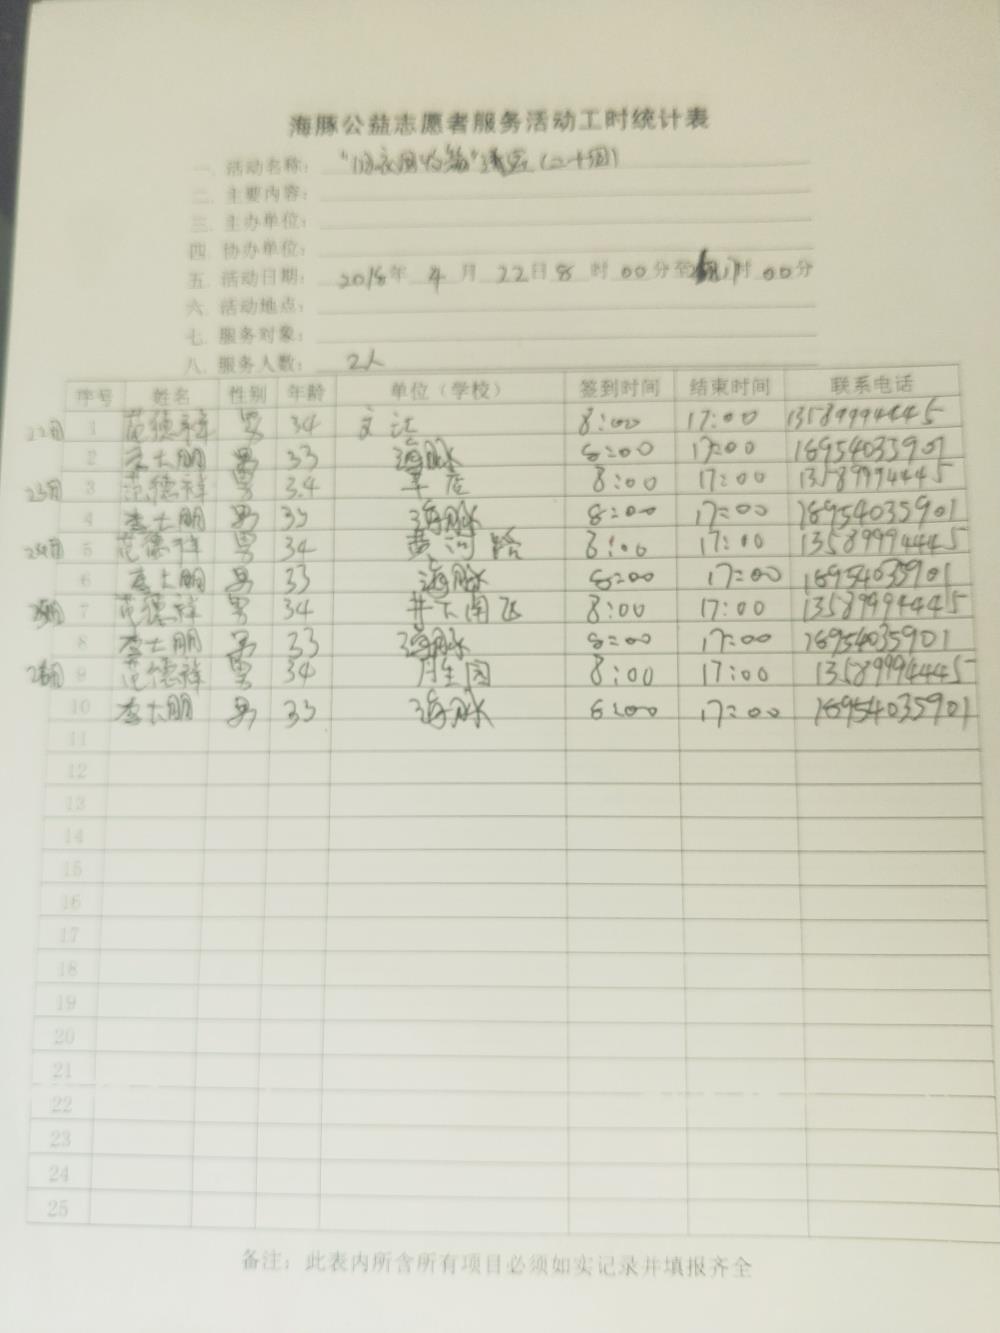 海豚公益志愿者服务活动工时统计表
一. 活动名称: "旧衣回收箱" (二十周)
二. 主要内容:
三. 主办单位:
四 协办单位:
五. 活动日期: 2018年 4 月 22日 8 时 00分至 17时 00分
六. 活动地点:
七. 服务对象:
八. 服务人数: 2人
序号 姓名 性别 年龄 单位(学校) 签到时间 结束时间 联系电话
22日 1 范德祥 男 34 8:00 17:00 13589994445
2 李大朋 男 33 海脉 8:00 17:00 18954035901
23日 3 范德祥 男 34 8:00 17:00 13589994445
4 李大朋 男 33 海脉 8:00 17:00 18954035901
24日 5 范德祥 男 34 黄河路 8:00 17:00 13589994445
6 李大朋 男 33 海脉 8:00 17:00 18954035901
7 范德祥 男 34 8:00 17:00 13589994445
8 李大朋 男 33 海脉 8:00 17:00 18954035901
9 范德祥 男 34 8:00 17:00 13589994445
10 李大朋 男 33 海脉 8:00 17:00 18954035901
11
12
13
14
15
16
17
18
19
20
21
22
23
24
25
备注: 此表内所含所有项目必须如实记录并填报齐全